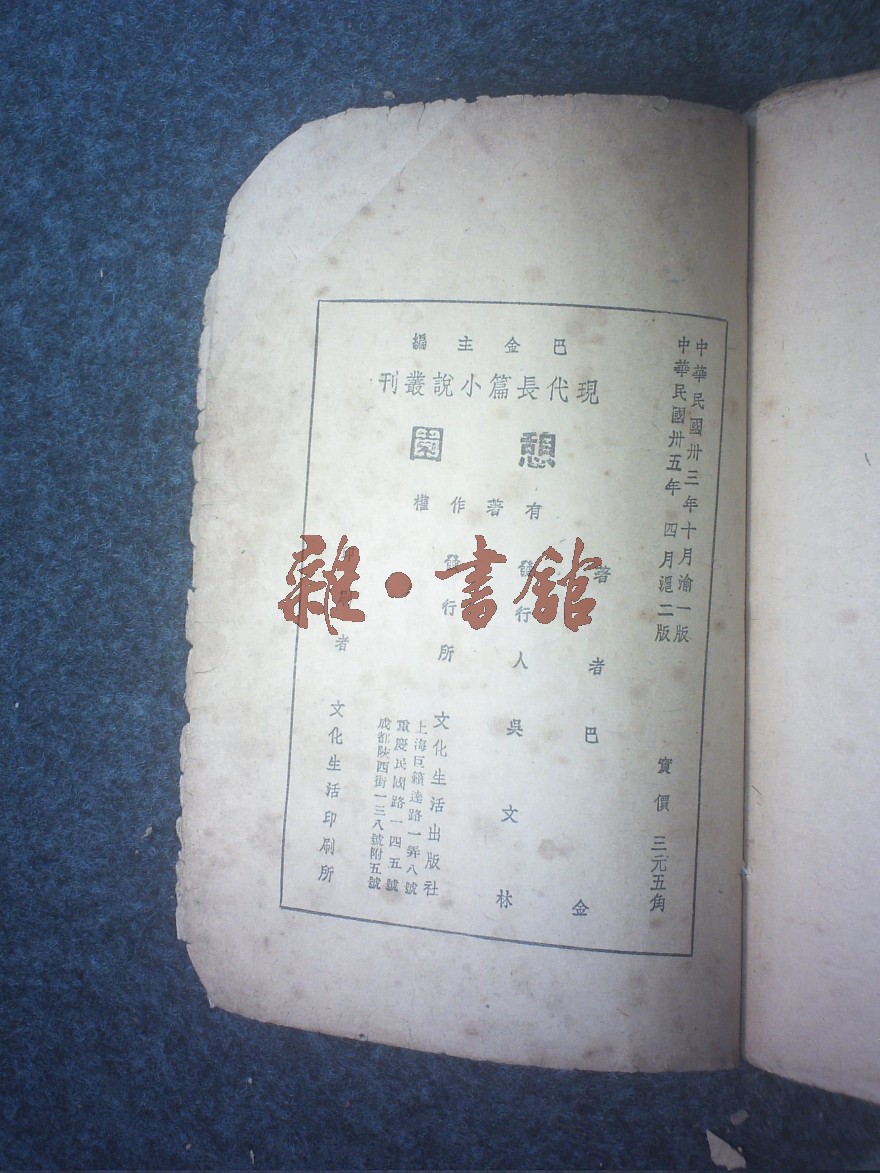 中華民國卅三年十月渝一版
中華民國卅五年 四月滬二版
實價 三元五角
巴金主編
現代長篇小說叢刊
憩園
有著作權
著者 巴金
發行人 吳文林
發行所 文化生活出版社
上海巨籟達路一弄八號
重慶民國路一四五號
成都陝西街一三八號附五號
者 文化生活印刷所
雜·書館